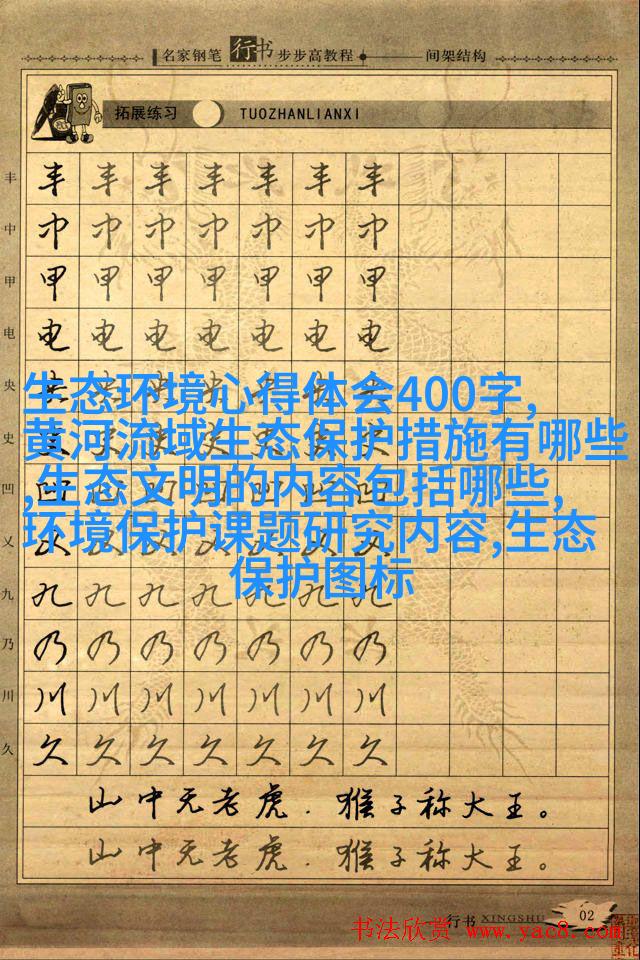 名家钢笔行书步步高教程 间架结构
拓展练习 TUOZHANLIANXI
丰 丰 丰 丰 丰 丰 丰 丰
中 中 中 中 中 中 中 中
甲 甲 甲 甲 甲 甲 甲 甲
电 电 电 电 电 电 电 电
央
生态环境心得体会400字,
史
黄河流域生态保护措施有哪些
凹
,生态文明的内容包括哪些,
乂
环境保护课题研究内容,生态
保护图标
九 九 九 九 九 九 九 九
乃 乃 乃 乃 乃 乃 乃 乃
川 川 川 川 川 川 川 川
久 久 久 久 久 久 久 久
山中无老虎.猴子称大王。
山中无老虎.猴子称大王。
行书 XINGSHU 02
书法欣赏 www.yac8.com